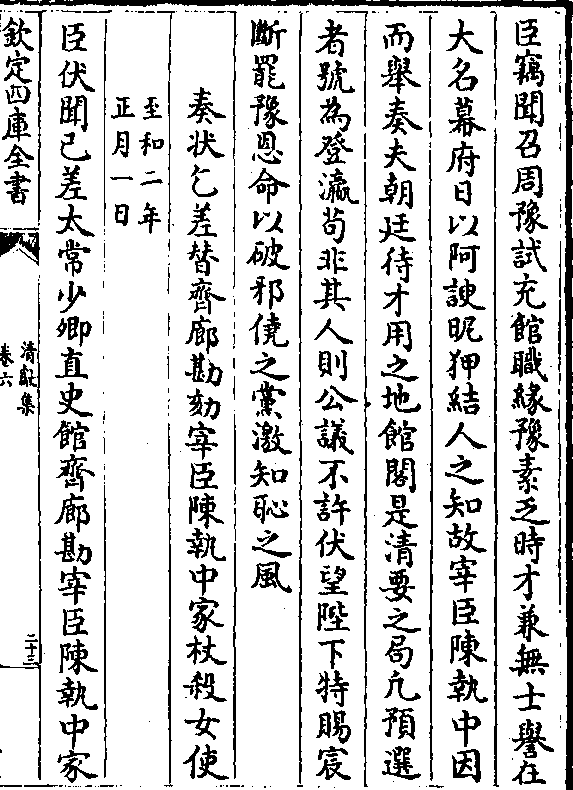 臣竊聞召周豫試充館職緣豫素乏時才兼無士譽在
大名幕府日以阿諛昵狎結人之知故宰臣陳執中因
而舉奏夫朝廷待才用之地館閣是清要之局凡預選
者號為登瀛茍非其人則公議不許伏望陛下特賜宸
斷罷豫恩命以破邪僥之黨激知恥之風
奏状乞差替齊廓勘劾宰臣陳執中家杖殺女使
至和二年
正月一日
臣伏聞已差太常少卿直史館齊廓勘宰臣陳執中家
欽定四庫全書
清獻集
卷六
二十三